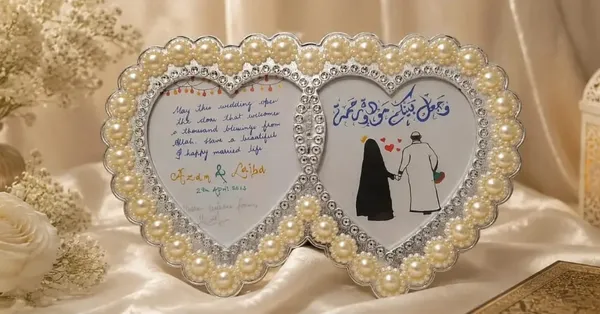 May this wedding open
the door that welcomes
a thousand blessings from
Allah. Have a beautiful
& happy married life
Azan & Laiba
وجعل بينكم مودة ورحمة